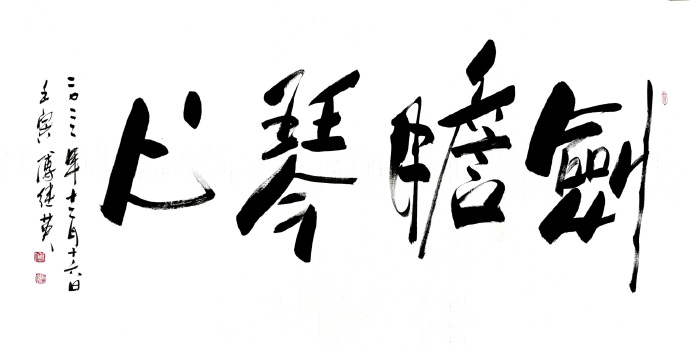 劍膽琴心
二〇二二年十二月十六日
壬寅 傅继英